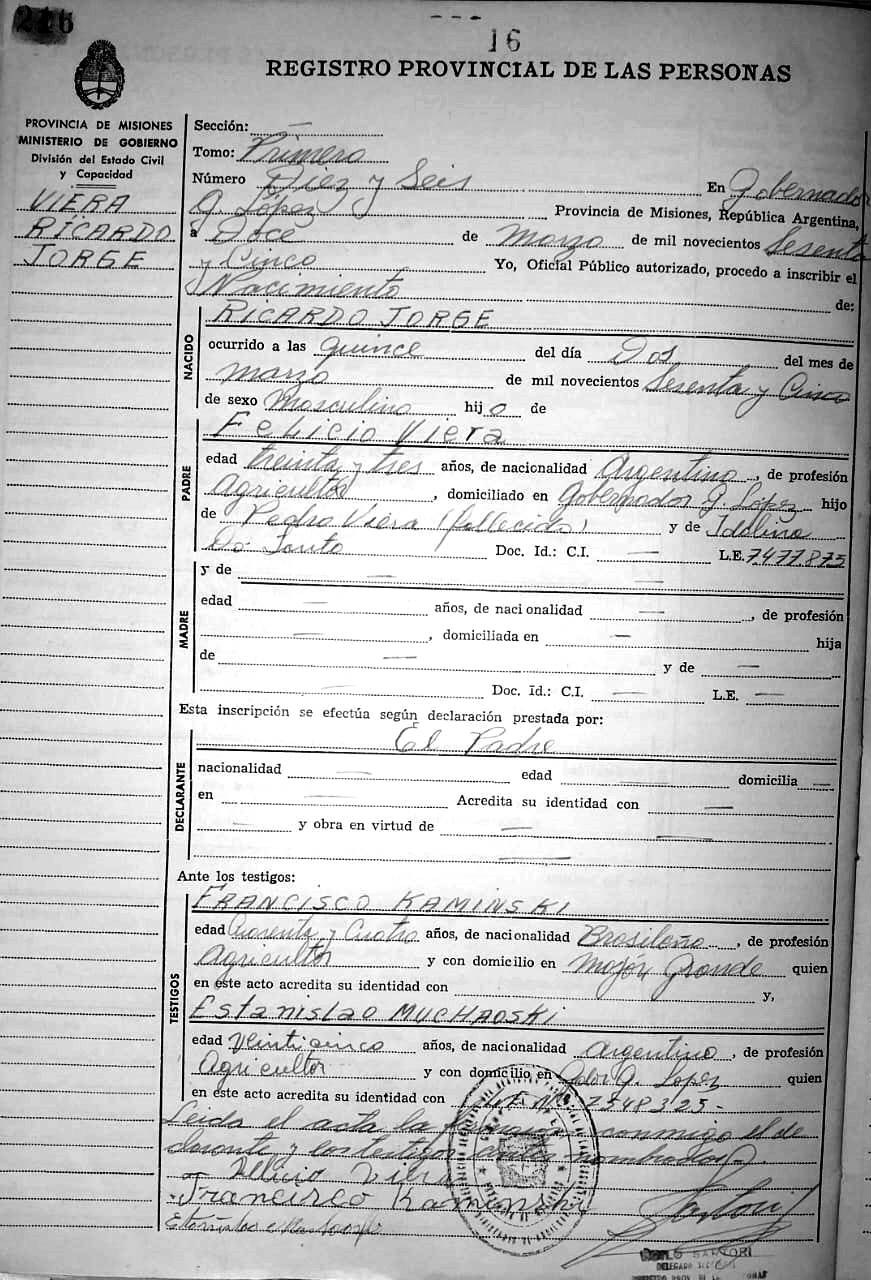 216
16
REGISTRO PROVINCIAL DE LAS PERSONAS
PROVINCIA DE MISIONES
MINISTERIO DE GOBIERNO
División del Estado Civil
y Capacidad
VIERA
RICARDO
JORGE
Sección:
Tomo: Primero
Número Diez y Seis En Gobernador
G. López Provincia de Misiones, República Argentina,
a Doce de marzo de mil novecientos Sesenta
y Cinco Yo, Oficial Público autorizado, procedo a inscribir el
Nacimiento de:
NACIDO
RICARDO JORGE
ocurrido a las quince del día Dos del mes de
marzo de mil novecientos Sesenta y Cinco
de sexo Masculino hijo de
PADRE
Felicio Viera
edad treinta y tres años, de nacionalidad Argentino, de profesión
Agricultor, domiciliado en Gobernador G. López hijo
de Pedro Viera (fallecido) y de Idolina
Do Santo Doc. Id.: C.I. — L.E. 7477875
MADRE
y de —
edad — años, de nacionalidad —, de profesión
—, domiciliada en — hija
de — y de —
— Doc. Id.: C.I. — L.E. —
Esta inscripción se efectúa según declaración prestada por:
El Padre
DECLARANTE
nacionalidad — edad — domicilia —
en — Acredita su identidad con —
— y obra en virtud de — —
—
Ante los testigos:
TESTIGOS
FRANCISCO KAMINSKI
edad Cuarenta y Cuatro años, de nacionalidad Brasileña, de profesión
Agricultor y con domicilio en Mojón Grande quien
en este acto acredita su identidad con y,
Estanislao MUCHAOSKI
edad Veinticinco años, de nacionalidad argentino, de profesión
Agricultor y con domicilio en Gdor G. Lopez quien
en este acto acredita su identidad con L.E. Nº 7548325-
Leida el acta la conmigo el de
clarante y los testigos antes nombrados
Felicio Viera
Francisco Kaminski
Sartori
SARTORI
DELEGADO